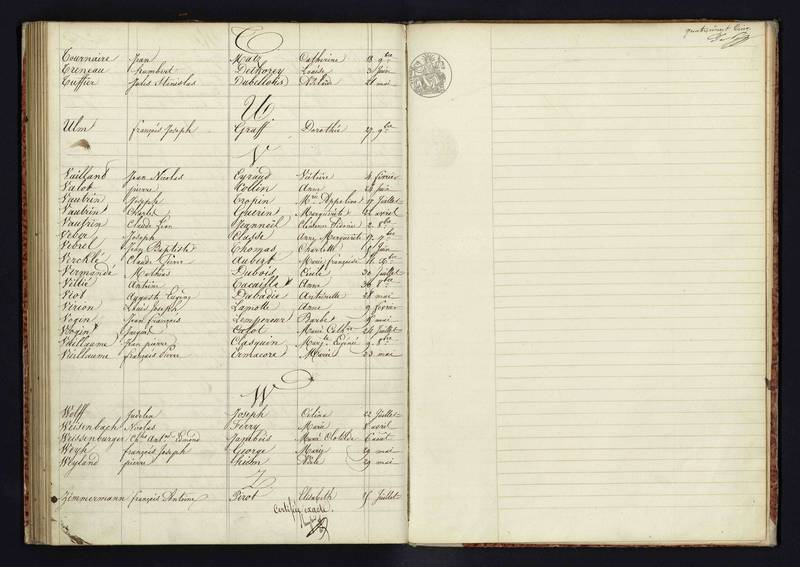 T
Tournaire Jean Matz Catherine 18 9bre
Treneau Humbert Delhorey Louise 3 Juin
Tuffier Jules Stanislas Dubellois 21 mai
U
Ulm françois Joseph Graff Dorothée 27 9bre
V
Vaillant Jean Nicolas Eyraud 4 février
Valot pierre Collin Anne Juin
Vautrin Joseph Cropin Mrie Appoline 17 Juillet
Vautrin Charles Guerin Marguerite 21 avril
Vautrin Claude Léon Jeannoël 2 8bre
Veber Joseph Classe Anne Marguerite 17 9bre
Vebrel Jean Baptiste Thomas Charlotte 18 Juin
Verchlé Claude Pierre Aubert Marie françoise 11 Xbre
Vermande Mathias Dubois 30 Juillet
Villié Antoine Cacailla Anne 30 8bre
Viot Auguste Eugène Dabadie Antoinette 28 mai
Virion Louis Joseph Lamotte Anne 9 février
Vogin Jean françois Lempereur Barbe 9 mai
Vogin Colot Marie Cathne 24 Juillet
Vuillaume Jean pierre Clasquin Eugénie 9 8bre
Vuillaume françois Pierre Ormacore Marie 23 mai
W
Wolff Joseph 22 Juillet
Weisenbach Nicolas Ferry Marie 8 avril
Weissenburger Chles Antne Edmond Jambois Marie Clotilde 6 aout
Weyh françois Joseph George Marie 29 mai
Weyland pierre 29 mai
Z
Zimmermann françois Antoine Pérot Elisabeth 25 Juillet
Certifié exacte.
quatrieme et